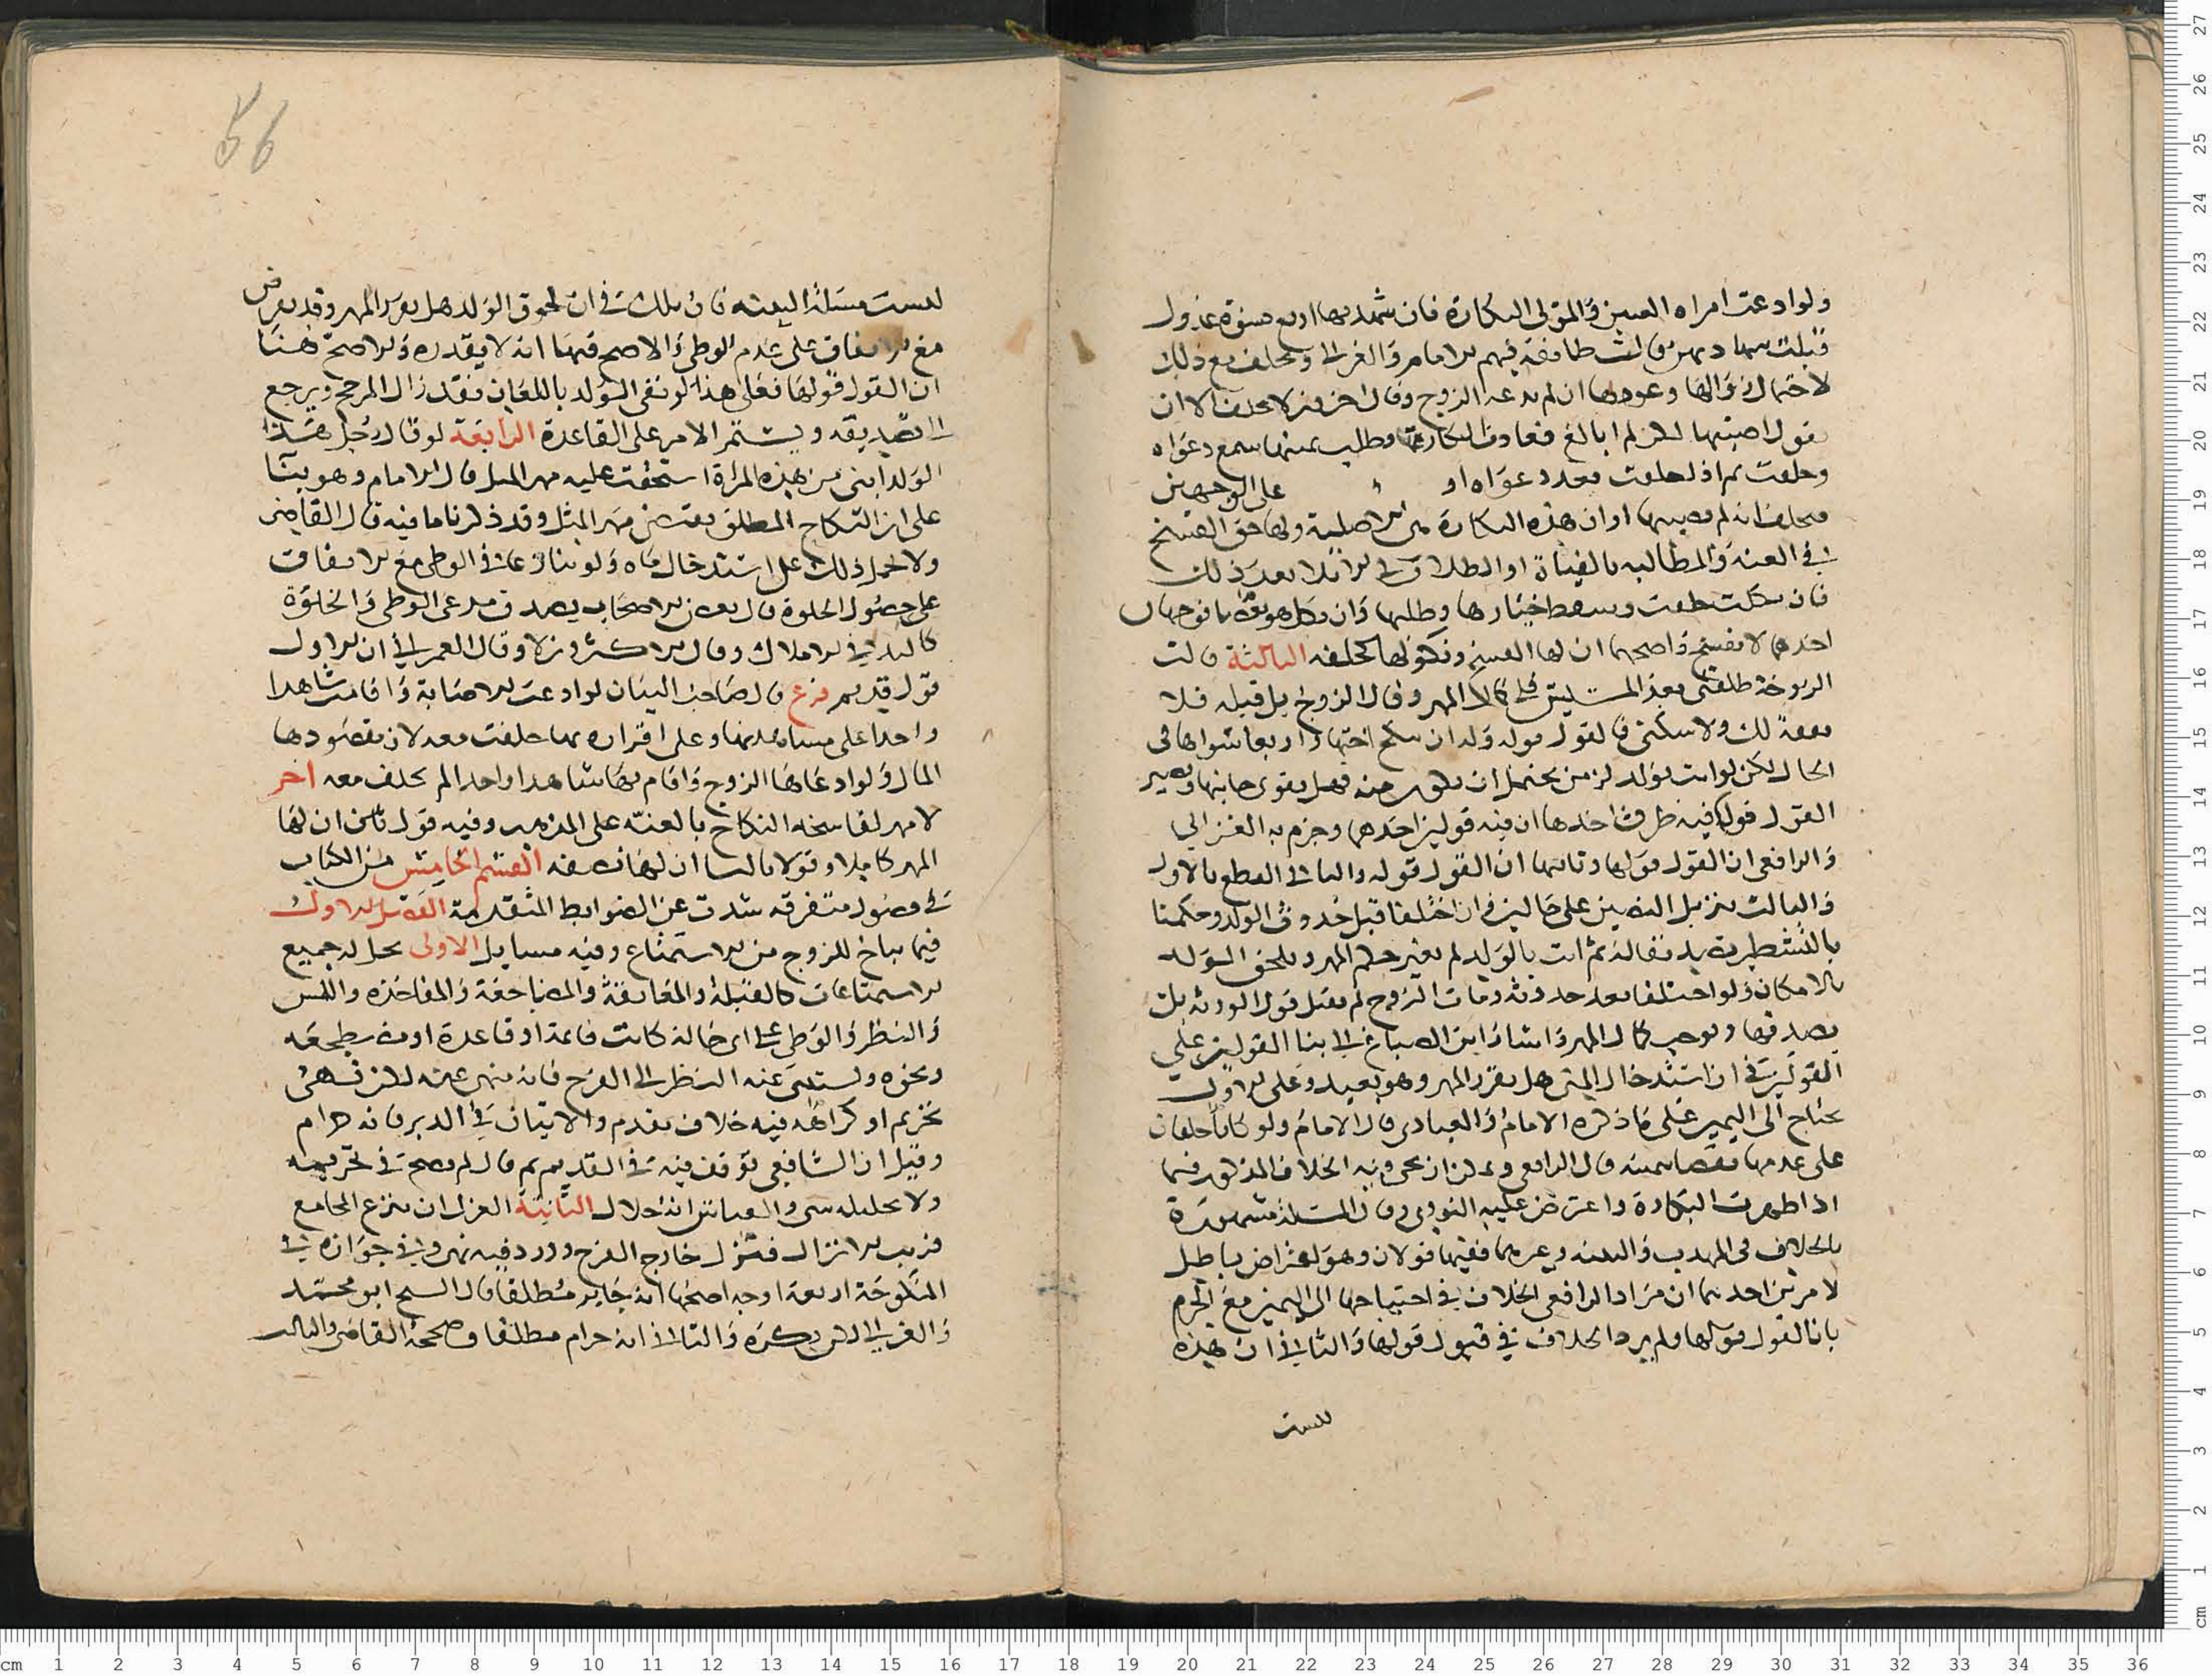 ولو ادعت امراه العنين والمولى البكارة فان شهد بها اربع نسوة عدول
قبلت وقالت طائفة منهم الامام والغزالى ويحلف مع ذلك
لاحتمال زوالها وعودها ان لم يدعه الزوج وقال اخرون لا يحلف الا ان
يقول اصبتها لكن لم ابالغ فعادت البكارة وطلب يمينها سمع دعواه
وحلفت على الوجهين
فيحلف انه لم يصبها او ان هذه البكارة هى الاصلية ولها حق الفسخ
فى العنه والمطالبه بالفياة او الطلاق فى الايلا بعد ذلك
فان نكلت حلف وسقط خيارها وطلبها وان نكل هو ايضا فوجهان
احدهما لا يفسخ واصحهما ان لها الفسخ ونكولها كحلفه الثالثة قالت
الزوجة طلقتنى بعد المسيس فلى كمال المهر وقال الزوج بل قبله فلا
نفقة لك ولا سكنى فالقول قوله وله ان ينكح اختها واربعا سواها فى
الحال لكن لو اتت بولد لزمن يحتمل ان يكون منه فهل يقوى جانبها ويصير
القول قولها فيه طرق احدها ان فيه قولين احدهما وجزم به الغزالي
والرافعى ان القول قولها وثانيهما ان القول قوله والثانى القطع بالاول
والثالث تنزيل النصين على حالين فان اختلفا قبل حدوث الولد وحكمنا
بالتشطير ثم اتت بالولد لم يغير حكم المهر ويلحق الولد
بالامكان ولو اختلفا بعد حدوثه ومات الزوج لم يقبل قول الورثه بل
يصدقها ويوجب كمال المهر واشار ابن الصباغ الى بنا القولين على
القولين فى ان استدخال المنى هل يقرر المهر وهو بعيد وعلى الاول
يحتاج الى اليمين على ما ذكره الامام والعبادى قال الامام ولو كانا حلفا
على عدمها قال الرافعى ويمكن ان يجى فيه الخلاف المذكور فيما
اذا ظهرت البكارة واعترض عليه النووى وقال المسئلة مشهورة
بالخلاف فى المهذب والتنبيه وغيرهما ففيها قولان وهو اعتراض باطل
لامرين احدهما ان مراد الرافعى الخلاف فى احتياجها الى اليمين مع الجزم
بان القول قولها ولم يرد الخلاف فى قبول قولها والثانى ان هذه
ليست
56
ليست مسئلة التنبيه فان تلك فى ان لحوق الولد هل يقرر المهر وقد يفرض
مع الاتفاق على عدم الوطى والاصح فيها انه لا يقدره والاصح هنا
ان القول قولها فعلى هذا لو نفى الولد باللعان فقد زال المرجح ويرجع
الى تصديقه ويستمر الامر على القاعدة الرابعة لو قال رجل هذا
الولد ابنى من هذه المراة استحقت عليه مهر المثل قال الامام وهو بنآ
على ان النكاح المطلق يقتضى مهر المثل وقد ذكرنا ما فيه قال القاضى
ولا يحمل ذلك على استدخال ماه ولو تنازعا فى الوطى مع الاتفاق
على حصول الخلوة قال بعض الاصحاب يصدق مدعى الوطى والخلوة
كاليد فى الاملاك وقال الاكثرون لا وقال العمرانى ان الاول
قول قديم فرع قال صاحب البيان لو ادعت الاصابة واقامت شاهدا
واحدا على مشاهدتها وعلى اقراره بها حلفت معه لان مقصودها
المال ولو ادعاها الزوج واقام بها شاهدا واحدا لم يحلف معه اخر
لا مهر لفاسخه النكاح بالعنه على المذهب وفيه قول ثان ان لها
المهر كاملا وقولا ثالثا ان لها نصفه القسم الخامس من الكتاب
فى فصول متفرقه شذت عن الضوابط المتقدمة الفصل الاول
فيما يباح للزوج من الاستمتاع وفيه مسايل الاولى يحل له جميع
الاستمتاعات كالقبلة والمعانقة والمضاجعة والمفاخذه واللمس
والنظر والوطى على اى حالة كانت قائمة او قاعدة او مضطجعه
ونحوه ويستثنى عنه النظر الى الفرج فانه منهى عنه لكن نهى
تحريم او كراهة فيه خلاف تقدم والاتيان فى الدبر فانه حرام
وقيل ان الشافعى توقف فيه فى القديم ثم قال لم يصح فى تحريمه
ولا تحليله شى والقياس انه حلال الثانية العزل ان ينزع المجامع
قريب الانزال فينزل خارج الفرج وورد فيه نهى وفى جوازه فى
المنكوحة اربعة اوجه اصحها انه جايز مطلقا قال الشيخ ابو محمد
والغزالى لكن يكره والثانى انه حرام مطلقا وصححه القاضى والثالث